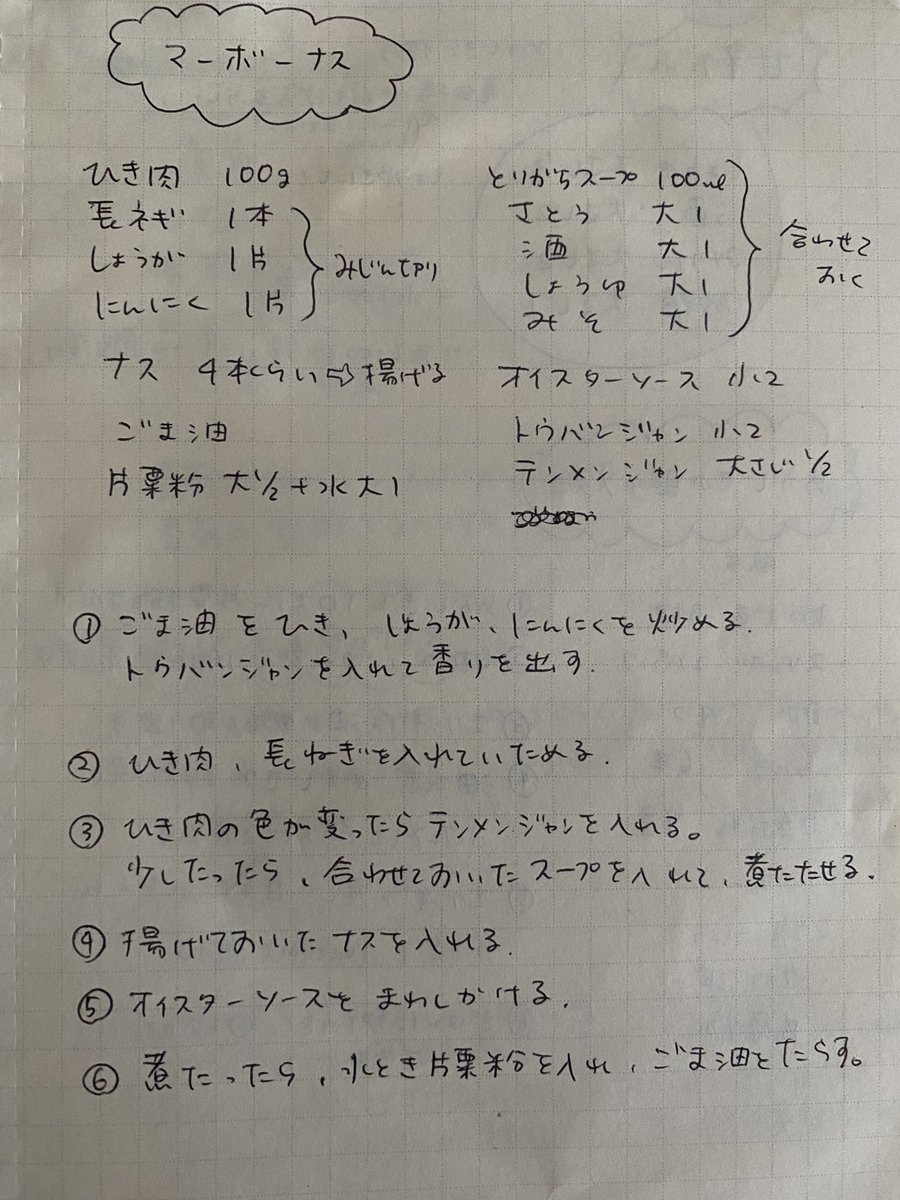 マーボーナス
ひき肉 100g
長ネギ 1本
しょうが 1片
にんにく 1片
みじん切り
ナス 4本くらい⇨揚げる
ごま油
片栗粉 大1/2+水大1
とりがらスープ 100ml
さとう 大1
酒 大1
しょうゆ 大1
みそ 大1
合わせて
おく
オイスターソース 小2
トウバンジャン 小2
テンメンジャン 大さじ1/2
① ごま油をひき、しょうが、にんにくを炒める.
トウバンジャンを入れて香りを出す.
② ひき肉、長ねぎを入れていためる.
③ ひき肉の色が変ったらテンメンジャンを入れる。
少したったら、合わせておいたスープを入れて、煮たたせる.
④ 揚げておいたナスを入れる.
⑤ オイスターソースをまわしかける.
⑥ 煮たったら、水とき片栗粉を入れ、ごま油をたらす。